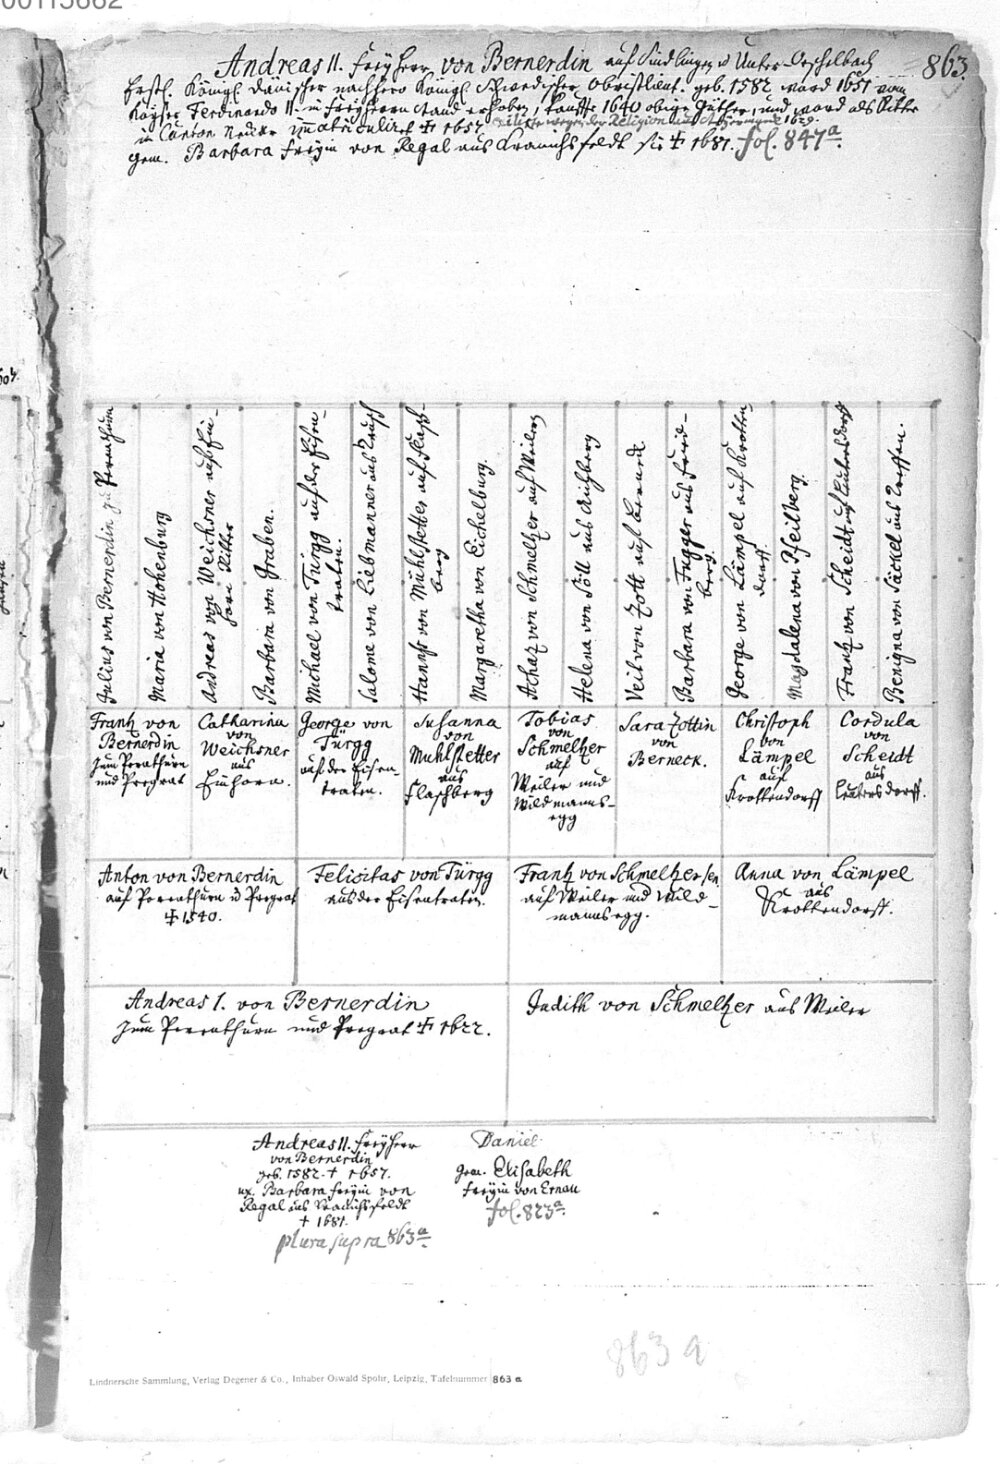 00115662
863.
Andreas II. Freyherr von Bernerdin auf Sindlingen u Unter-Oeschelbach
Erstl. Königl. Dänischer nachhero Königl. Schwedischer Obristlieut. geb. 1582 ward 1651 vom
Kayser Ferdinando II in Freyherrn Stand erhoben, kauffte 1640 obige Güther, und ward als Ritter
in Canton Neckar imatriculirt † 1657. wegen der Religion aus 1629.
gem. Barbara Freyin von Regal aus Kranichsfeldt sie † 1681. fol. 847a.
Julius von Bernerdin zu Pernthurn
Maria von Hohenburg
Andreas von Weichsner auf Ein-
horn Ritter
Barbara von Graben.
Michael von Türgg auf der Eisen-
traten.
Salome von Liebmanner aus
Hannß von Mühlstetter auf Flasch-
berg
Margaretha von Eichelburg.
Achaz von Schmeltzer auf Weilern
Helena von Söll aus Aichberg
Veit von Zott auf Berneck
Barbara von Fugger aus Fried-
berg.
George von Lämpel auf Krotten-
dorff.
Magdalena von Pfeilberg.
Frantz von Scheidt auf Leutersdorff
Benigna von Säckel aus Treffen.
Frantz von
Bernerdin
zum Pernthurn
und Pregrat
Catharina
von
Weichsner
aus
Einhorn.
George von
Türgg
auf der Eisen-
traten.
Susanna
von
Mühlstetter
aus
Flaschberg
Tobias
von
Schmeltzer
auf
Weiler und
Wildmanns-
egg
Sara Zottin
von
Berneck.
Christoph
von
Lämpel
auf
Krottendorff
Cordula
von
Scheidt
aus
Leutersdorff.
Anton von Bernerdin
auf Pernthurn u Pregrat
† 1540.
Felicitas von Türgg
aus der Eisentraten.
Frantz von Schmeltzer sen.
auf Weiler und Wild-
mannsegg.
Anna von Lämpel
aus
Krottendorff.
Andreas I. von Bernerdin
zum Pernthurn und Pregrat † 1622.
Judith von Schmeltzer aus Weiler
Andreas II. Freyherr
von Bernerdin
geb. 1582 † 1657.
ux. Barbara Freyin von
Regal aus Kranichsfeldt
† 1681.
plura supra 863a.
Daniel
gem. Elisabeth
Freyin von Ernau
fol. 823a.
863 a
Lindnersche Sammlung, Verlag Degener & Co., Inhaber Oswald Spohr, Leipzig, Tafelnummer 863 a